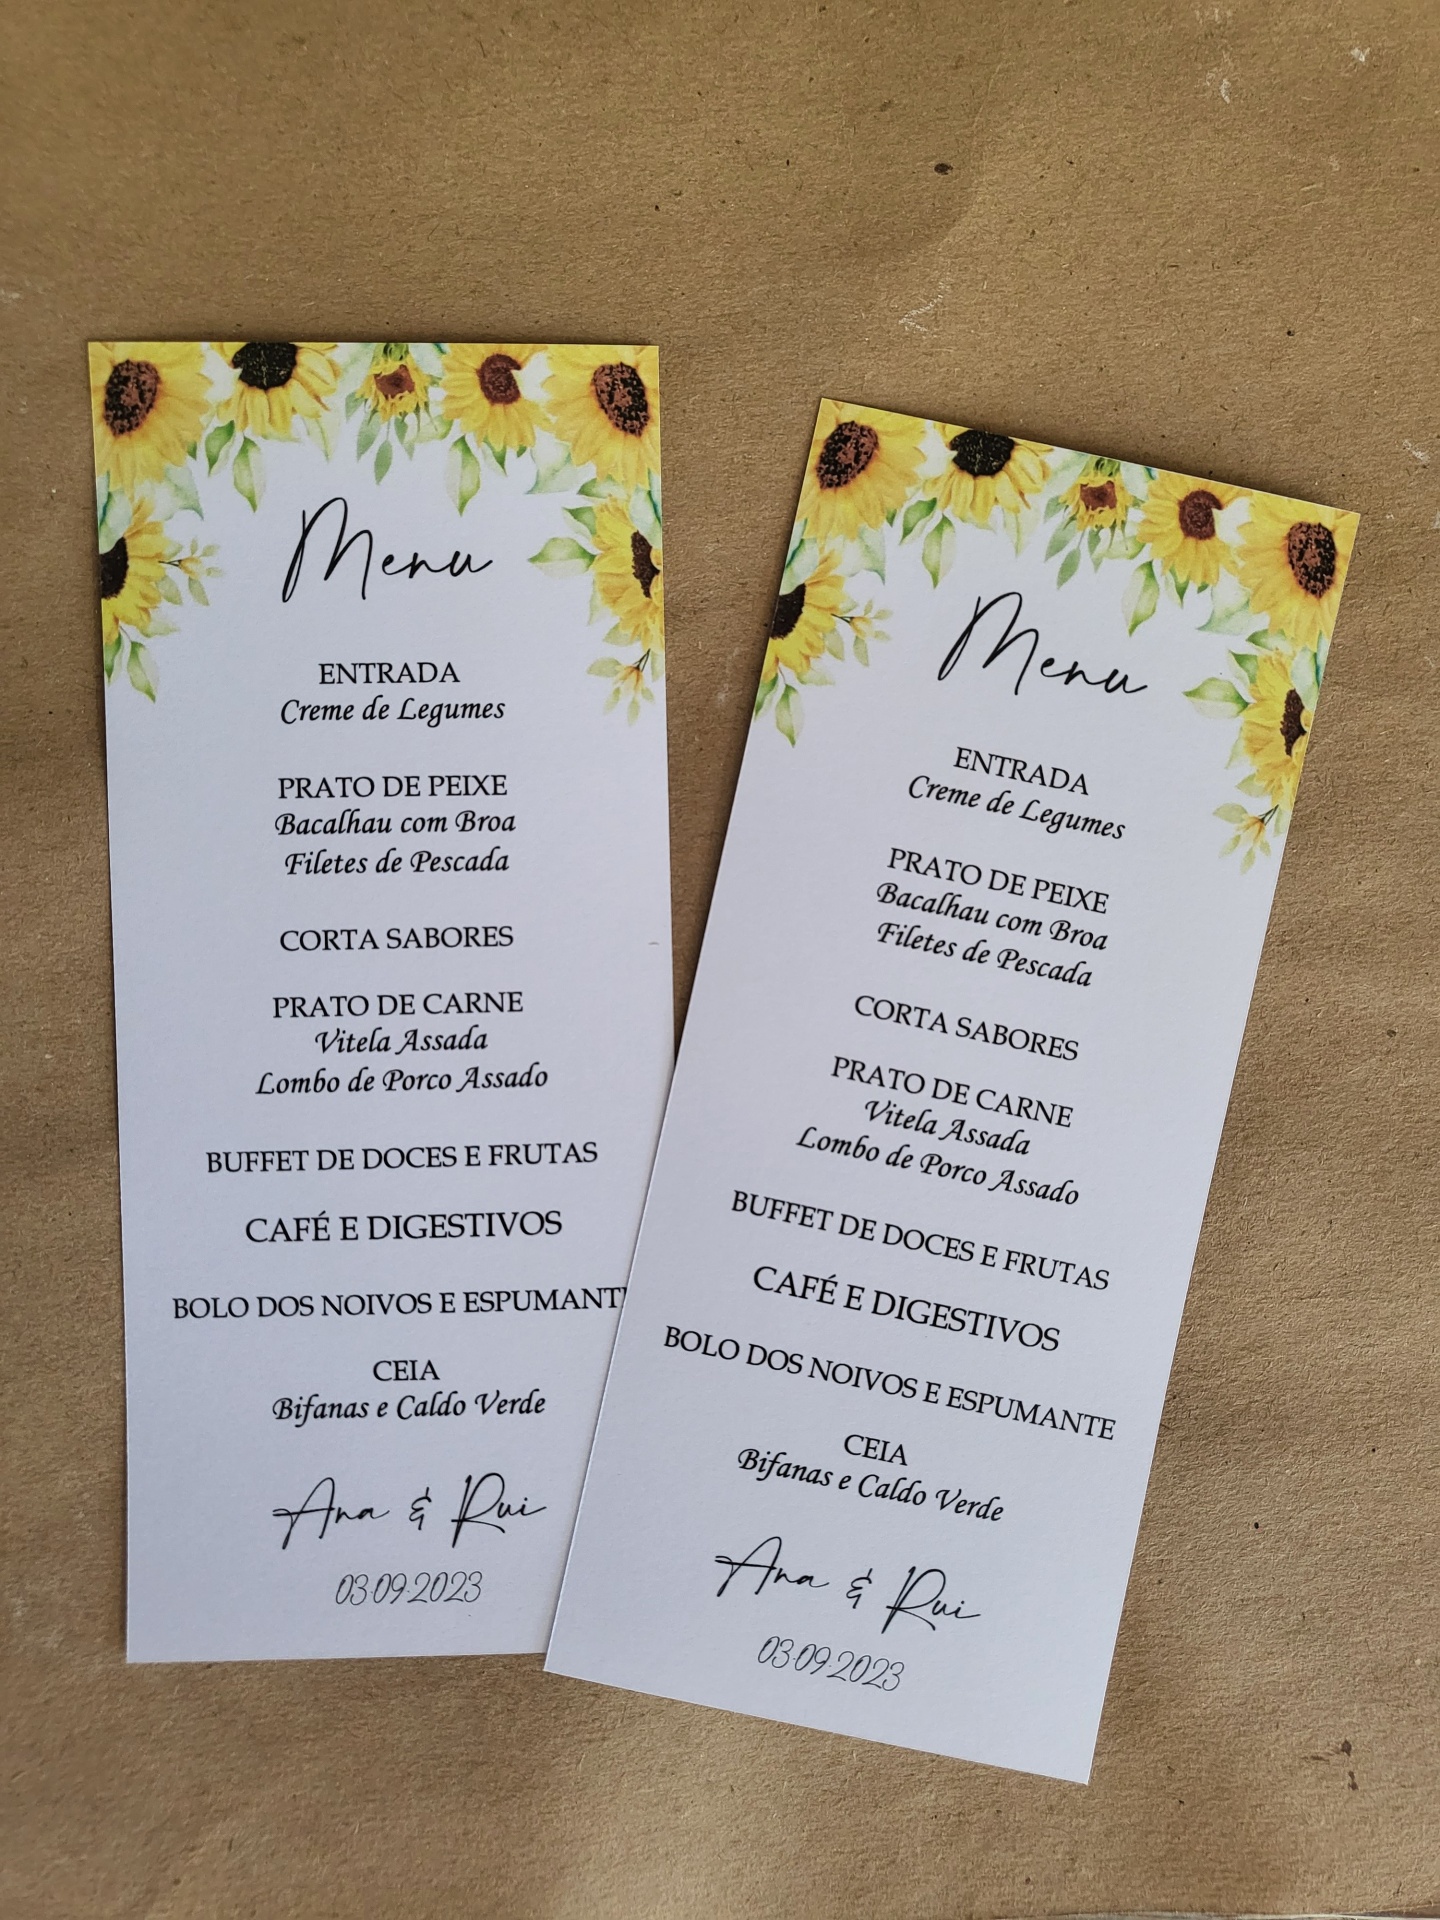 Menu
ENTRADA
Creme de Legumes
PRATO DE PEIXE
Bacalhau com Broa
Filetes de Pescada
CORTA SABORES
PRATO DE CARNE
Vitela Assada
Lombo de Porco Assado
BUFFET DE DOCES E FRUTAS
CAFÉ E DIGESTIVOS
BOLO DOS NOIVOS E ESPUMANT
CEIA
Bifanas e Caldo Verde
Ana & Rui
03·09·2023
Menu
ENTRADA
Creme de Legumes
PRATO DE PEIXE
Bacalhau com Broa
Filetes de Pescada
CORTA SABORES
PRATO DE CARNE
Vitela Assada
Lombo de Porco Assado
BUFFET DE DOCES E FRUTAS
CAFÉ E DIGESTIVOS
BOLO DOS NOIVOS E ESPUMANTE
CEIA
Bifanas e Caldo Verde
Ana & Rui
03·09·2023